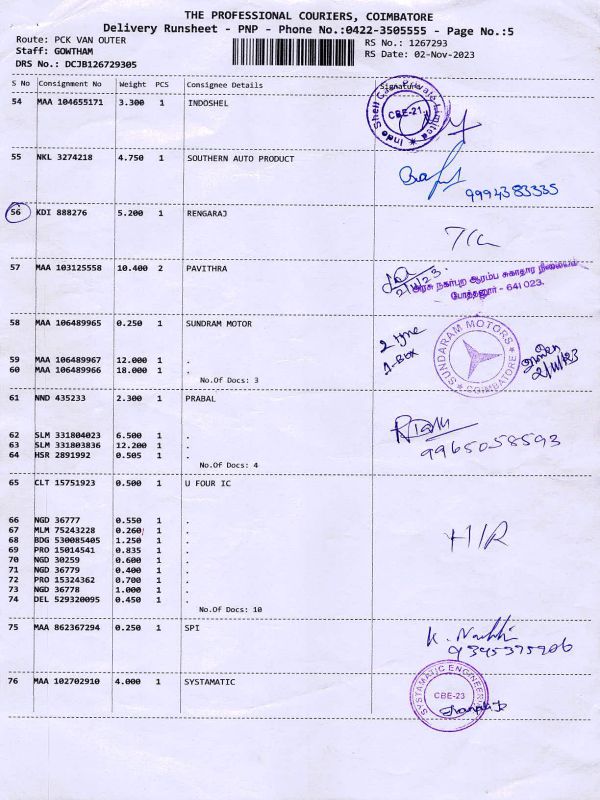 THE PROFESSIONAL COURIERS, COIMBATORE
Delivery Runsheet - PNP - Phone No.:0422-3505555 - Page No.:5
Route: PCK VAN OUTER RS No.: 1267293
Staff: GOWTHAM RS Date: 02-Nov-2023
DRS No.: DCJB126729305
S No Consignment No Weight PCS Consignee Details Signature
54 MAA 104655171 3.300 1 INDOSHEL
CBE-21
55 NKL 3274218 4.750 1 SOUTHERN AUTO PRODUCT
9994383335
56 KDI 888276 5.200 1 RENGARAJ
57 MAA 103125558 10.400 2 PAVITHRA
அரசு நகர்புற ஆரம்ப சுகாதார நிலையம்
போத்தனூர் - 641 023.
58 MAA 106489965 0.250 1 SUNDRAM MOTOR
SUNDARAM MOTORS
COIMBATORE
2/11/23
59 MAA 106489967 12.000 1 .
60 MAA 106489966 18.000 1 .
No.Of Docs: 3
61 NND 435233 2.300 1 PRABAL
9965058593
62 SLM 331804023 6.500 1 .
63 SLM 331803836 12.200 1 .
64 HSR 2891992 0.505 1 .
No.Of Docs: 4
65 CLT 15751923 0.500 1 U FOUR IC
66 NGD 36777 0.550 1 .
67 MLM 75243228 0.260 1 .
68 BDG 530085405 1.250 1 .
69 PRO 15014541 0.835 1 .
70 NGD 30259 0.600 1 .
71 NGD 36779 0.400 1 .
72 PRO 15324362 0.700 1 .
73 NGD 36778 1.000 1 .
74 DEL 529320095 0.450 1 .
No.Of Docs: 10
75 MAA 862367294 0.250 1 SPI
76 MAA 102702910 4.000 1 SYSTAMATIC
CBE-23